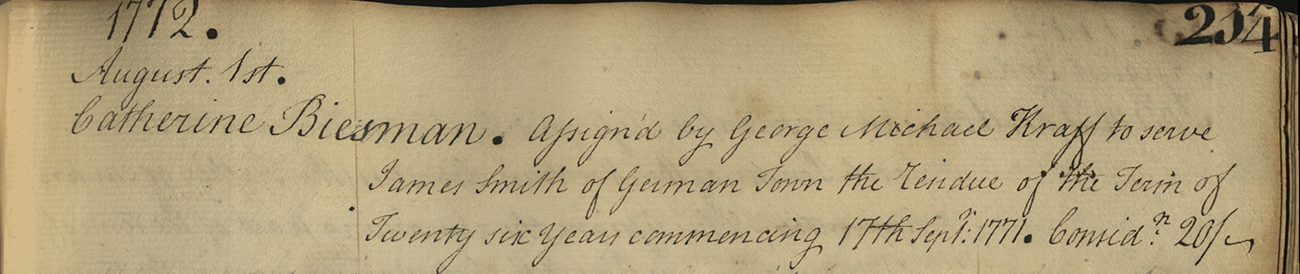 1772.
214
August. 1st.
Catherine Biesman. Assign'd by George Michael Kraff to serve
James Smith of German Town the Residue of the Term of
Twenty six Years commencing 17th Sept.r 1771. Consid.n 20/